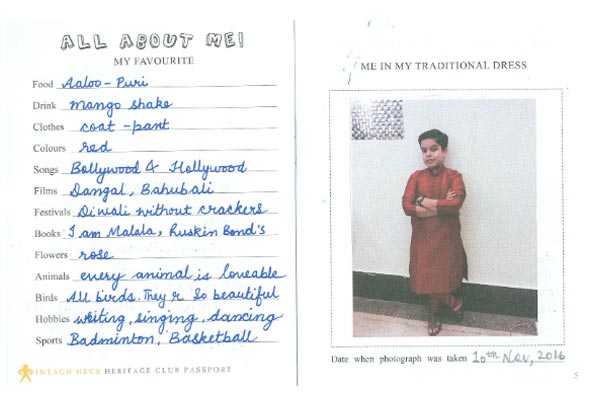 ALL ABOUT ME!
MY FAVOURITE
Food Aaloo-Puri
Drink mango shake
Clothes coat-pant
Colours red
Songs Bollywood & Hollywood
Films Dangal, Bahubali
Festivals Diwali without crackers
Books I am Malala, Ruskin Bond's
Flowers rose
Animals every animal is loveable
Birds All birds. They r so beautiful
Hobbies writing, singing, dancing
Sports Badminton, Basketball
INTACH HECS HERITAGE CLUB PASSPORT
ME IN MY TRADITIONAL DRESS
Date when photograph was taken 10th Nov, 2016
5